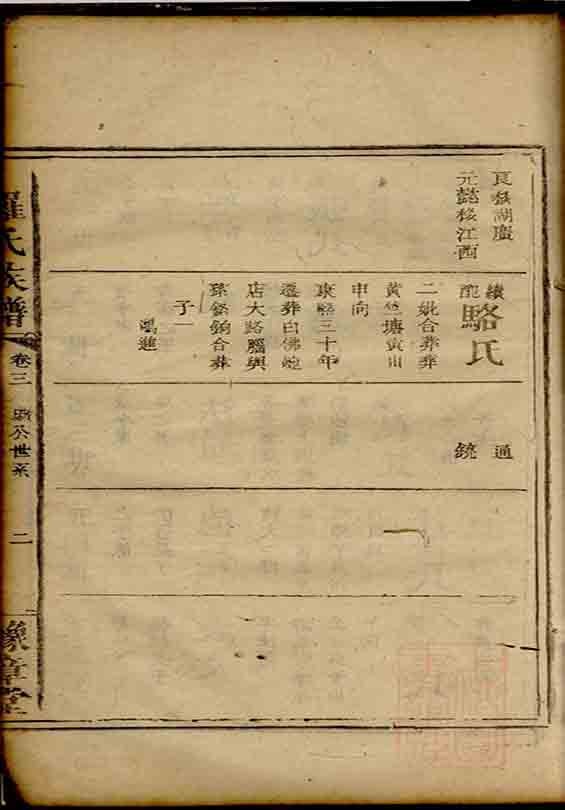 良移湖廣
元懿移江西
續配駱氏
二妣合葬葬
黃竺塘寅山
申向
康熙三十年
遷葬白佛蛇
店大路腦與
孫銘鉤合葬
子一
鴻進
通
鐃
羅氏族譜
卷三
公世系
二
豫章堂